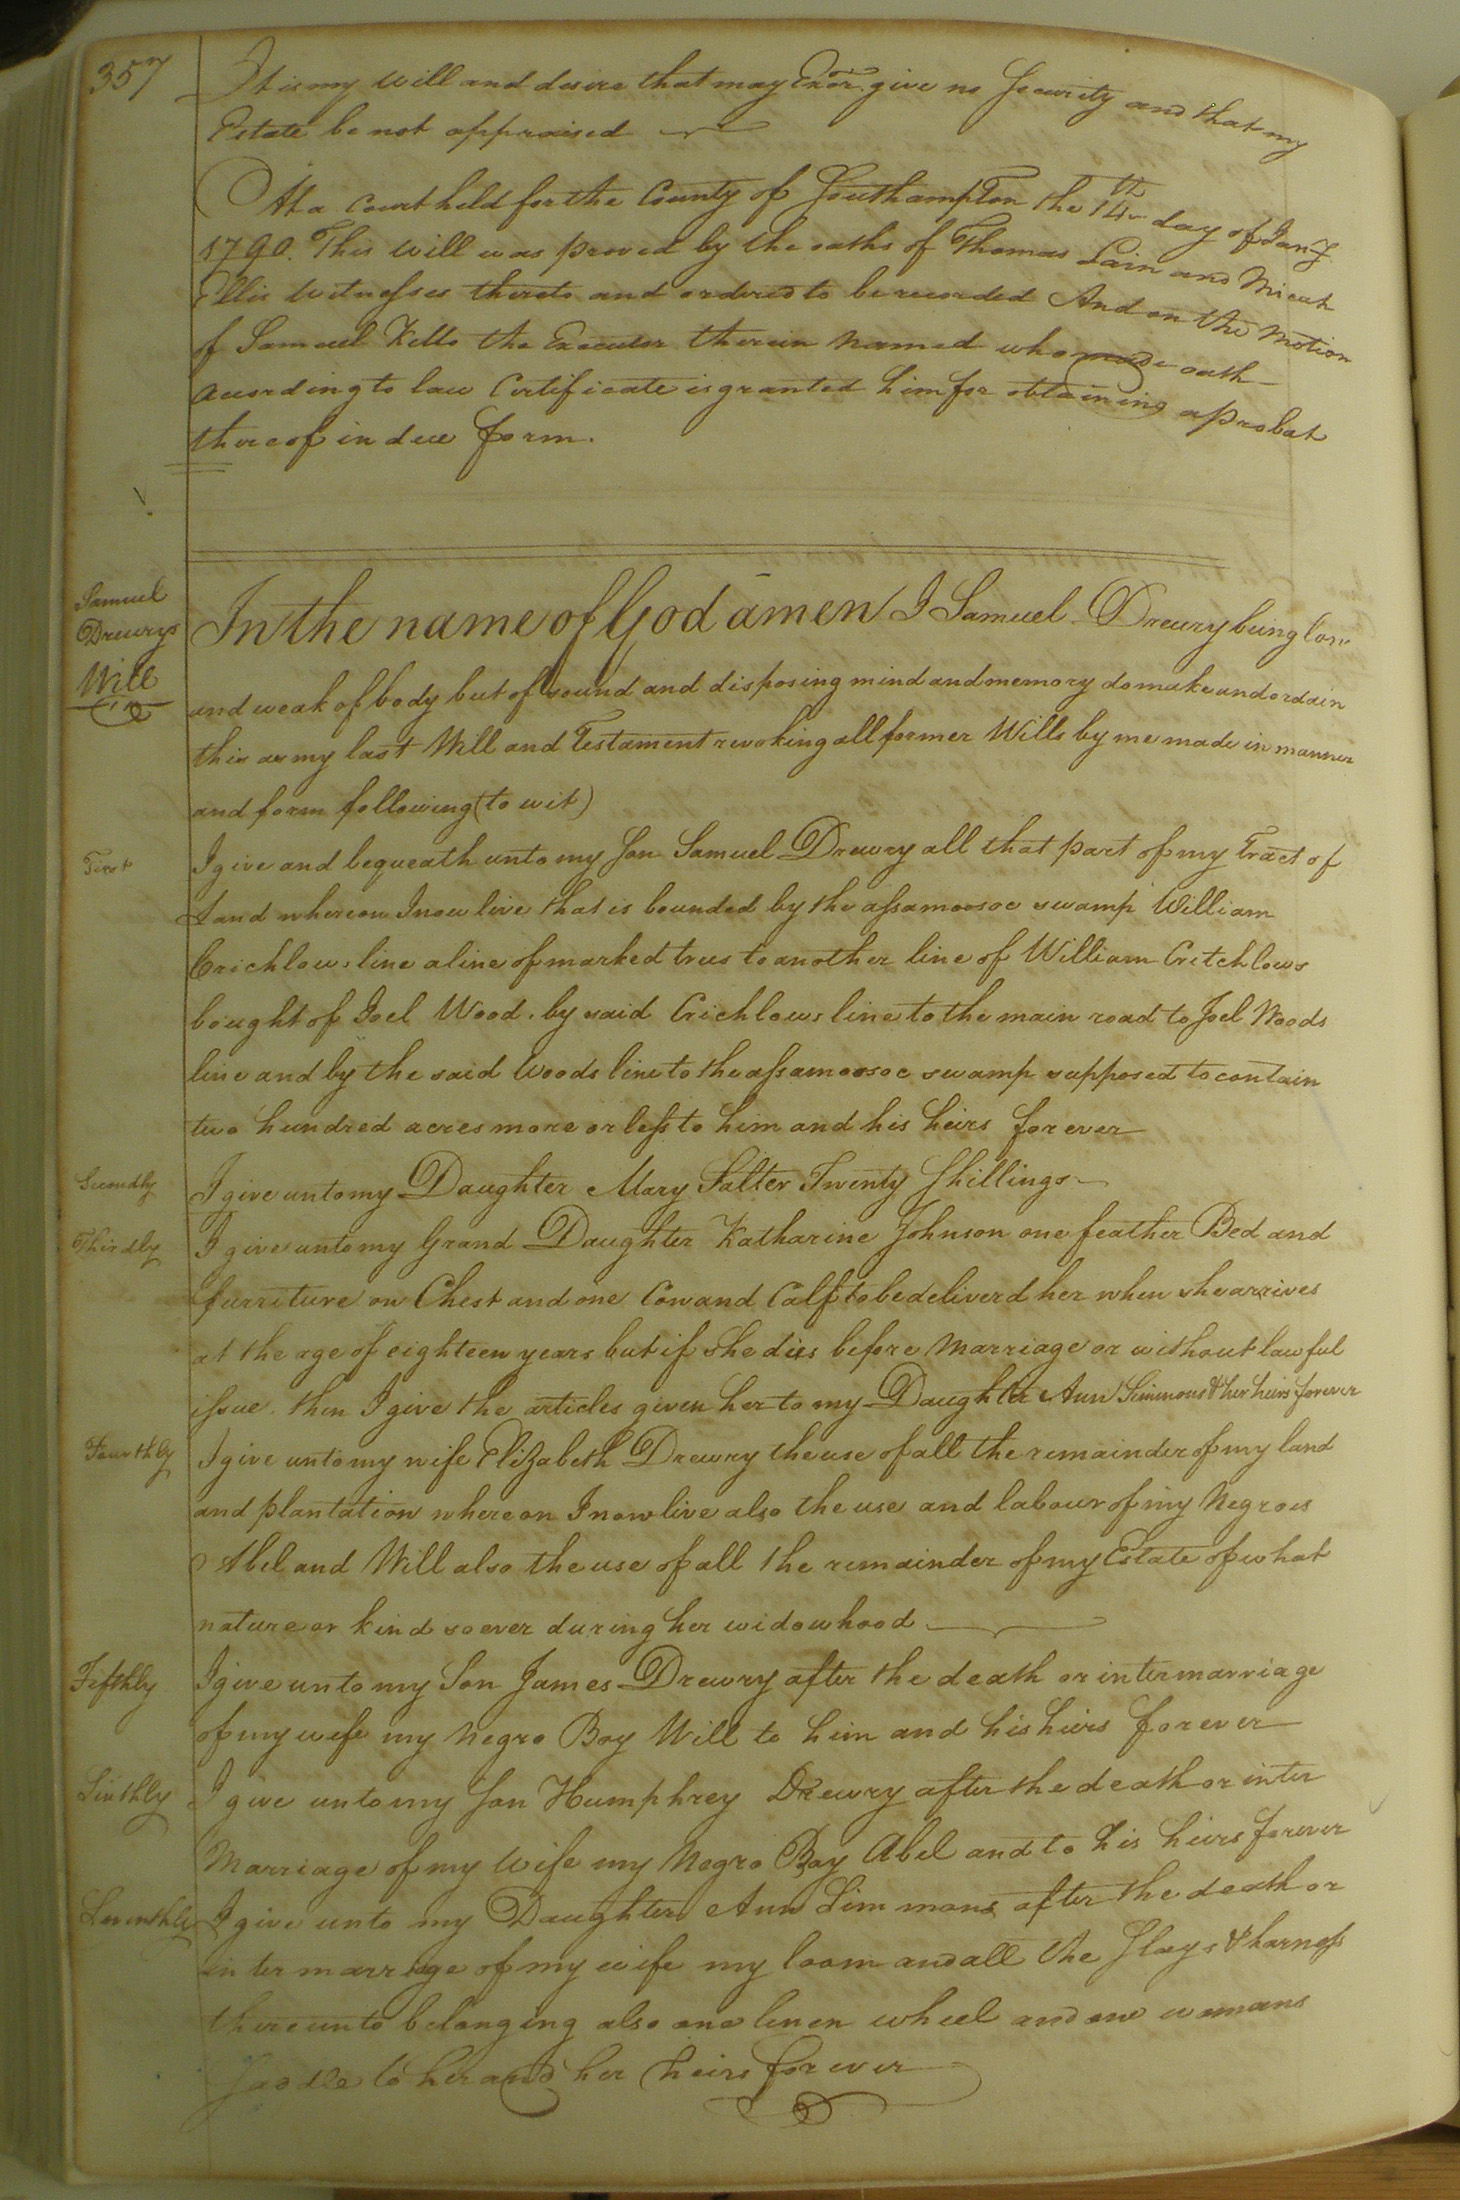 357
It is my will and desire that may Exor. give no Security and that my
Estate be not appraised
At a Court held for the County of Southampton the 14th day of Jany
1790. This will was proved by the oaths of Thomas Lain and Micah
Ellis witnesses thereto and ordered to be recorded And on the Motion
of Samuel Kello the Executor therein Named who made oath
According to law Certificate is granted him for obtaining a probat
thereof in due form.
Samuel
Drewrys
Will
In the name of God amen I Samuel Drewry being low
and weak of body but of sound and disposing mind and memory do make and ordain
this as my last Will and Testament revoking all former Wills by me made in manner
and form following (to wit)
First
I give and bequeath unto my Son Samuel Drewry all that part of my Tract of
Land whereon I now live that is bounded by the assamoosoc swamp William
Crichlows line a line of marked trees to another line of William Critchlows
bought of Joel Wood. by said Crichlows line to the main road to Joel Woods
line and by the said Woods line to the assamoosoc swamp supposed to contain
two hundred acres more or less to him and his heirs forever
Secondly
I give unto my Daughter Mary Salter Twenty Shillings
Thirdly
I give unto my Grand Daughter Katharine Johnson one feather Bed and
furriture on Chest and one Cow and Calf to be deliverd her when she arrives
at the age of eighteen years but if she dies before Marriage or without lawful
issue. then I give the articles given her to my Daughter Ann Simmons & her heirs forever
Fourthly
I give unto my wife Elizabeth Drewry the use of all the remainder of my land
and plantation whereon I now live also the use and labour of my Negroes
Abel and Will also the use of all the remainder of my Estate of what
nature or kind soever during her widowhood
Fifthly
I give unto my Son James Drewry after the death or intermarriage
of my wife my Negro Boy Will to him and his heirs forever
Sixthly
I give unto my Son Humphrey Drewry after the death or inter
Marriage of my Wife my Negro Boy Abel and to his heirs forever
Seventhly
I give unto my Daughter Ann Simmons after the death or
intermarriage of my wife my loom and all the Slays & harness
thereunto belonging also one linen wheel and one womans
Saddle to her and her heirs forever